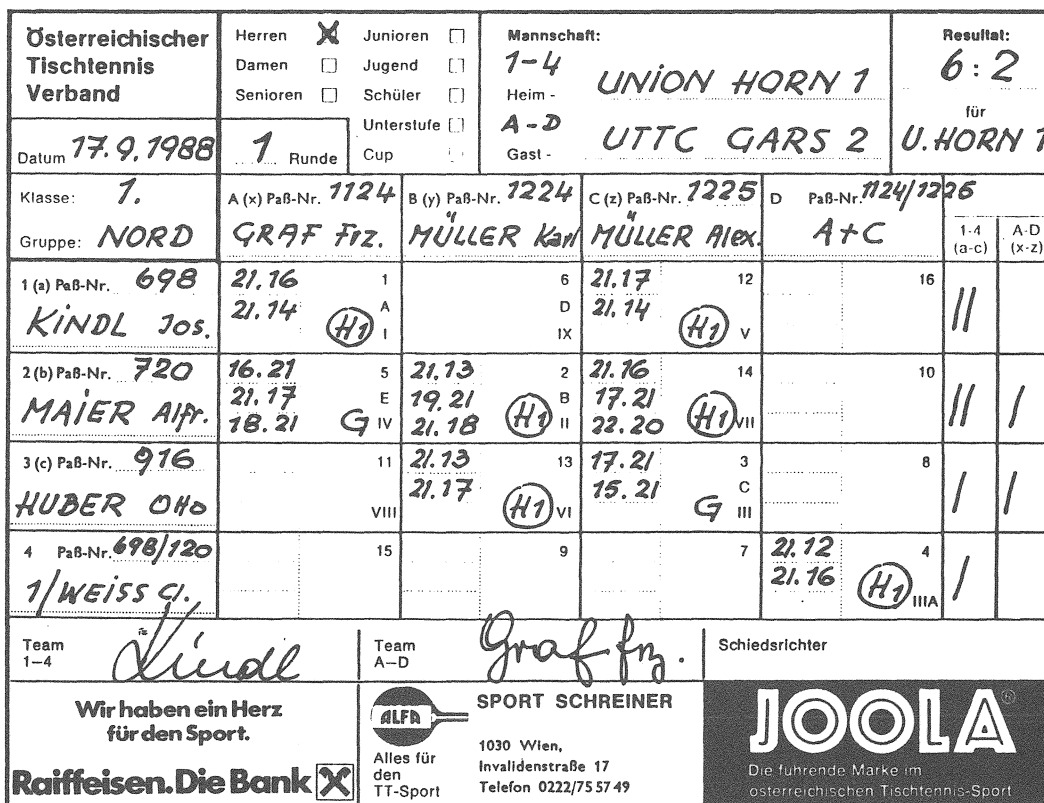 Österreichischer
Tischtennis
Verband
Herren ☒ Junioren ☐
Damen ☐ Jugend ☐
Senioren ☐ Schüler ☐
Unterstufe ☐
Cup
Mannschaft:
1-4
Heim - UNION HORN 1
A-D
Gast - UTTC GARS 2
Resultat:
6:2
für
U. HORN 1
Datum 17.9.1988 1 Runde
Klasse: 1.
Gruppe: NORD
A (x) Paß-Nr. 1124
GRAF Frz.
B (y) Paß-Nr. 1224
MÜLLER Karl
C (z) Paß-Nr. 1225
MÜLLER Alex.
D Paß-Nr. 1124/1225
A+C
1-4 A-D
(a-c) (x-z)
1 (a) Paß-Nr. 698
KINDL Jos.
21.16 1
21.14 A
H1 I
6
D
IX
21.17 12
21.14
H1 V
16
||
2 (b) Paß-Nr. 720
MAIER Alfr.
16.21 5
21.17 E
18.21 G IV
21.13 2
19.21 B
21.18 H1 II
21.16 14
17.21
22.20 H1 VII
10
|| |
3 (c) Paß-Nr. 916
HUBER Otto
11
VIII
21.13 13
21.17
H1 VI
17.21 3
15.21 C
G III
8
| |
4 Paß-Nr. 698/120
1/WEISS Cl.
15
9
7
21.12 4
21.16
H1 IIIA
|
Team
1-4 Kindl
Team
A-D Graf frz.
Schiedsrichter
Wir haben ein Herz
für den Sport.
Raiffeisen. Die Bank
ALFA
Alles für
den
TT-Sport
SPORT SCHREINER
1030 Wien,
Invalidenstraße 17
Telefon 0222/75 57 49
JOOLA®
Die führende Marke im
österreichischen Tischtennis-Sport